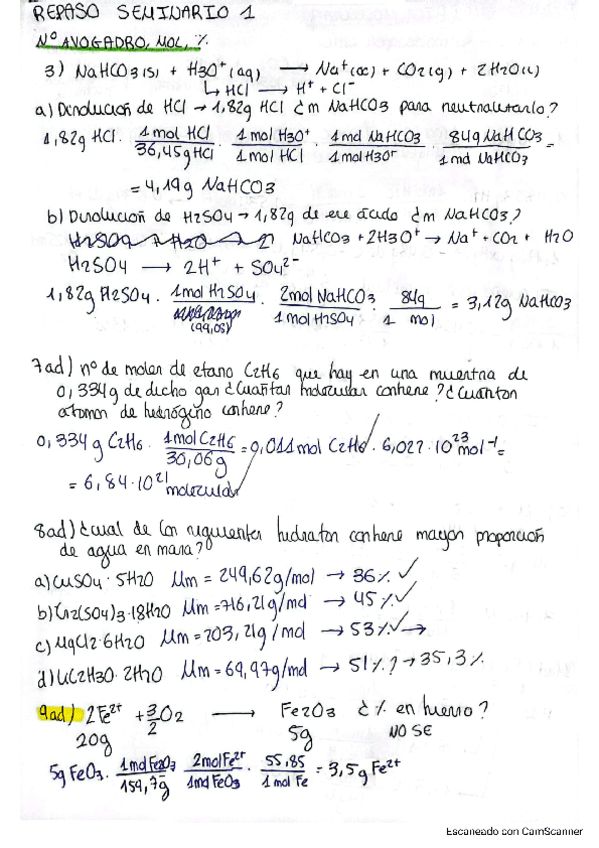 REPASO SEMINARIO 1
Nº AVOGADRO, MOL, %
3) NaHCO3(s) + H3O+(aq) → Na+(ac) + CO2(g) + 2H2O(l)
↳ HCl → H+ + Cl-
a) Disolución de HCl → 1,82g HCl ¿m NaHCO3 para neutralizarlo?
1,82g HCl · 1 mol HCl / 36,45g HCl · 1 mol H3O+ / 1 mol HCl · 1 mol NaHCO3 / 1 mol H3O+ · 84g NaHCO3 / 1 mol NaHCO3 =
= 4,19g NaHCO3
b) Disolución de H2SO4 → 1,82g de ese ácido ¿m NaHCO3?
NaHCO3 + 2H3O+ → Na+ + CO2 + H2O
H2SO4 → 2H+ + SO4 2-
1,82g H2SO4 · 1 mol H2SO4 / (99,08) · 2 mol NaHCO3 / 1 mol H2SO4 · 84g / 1 mol = 3,12g NaHCO3
7ad) nº de moles de etano C2H6 que hay en una muestra de
0,334g de dicho gas ¿Cuántas moléculas contiene? ¿Cuántos
átomos de hidrógeno contiene?
0,334 g C2H6 · 1 mol C2H6 / 30,06g = 0,011 mol C2H6 · 6,022 · 10^23 mol^-1 =
= 6,84 · 10^21 moléculas
8ad) ¿cuál de los siguientes hidratos contiene mayor proporción
de agua en masa?
a) CuSO4 · 5H2O Mm = 249,62g/mol → 36% ✓
b) Cr2(SO4)3 · 18H2O Mm = 716,21g/mol → 45% ✓
c) MgCl2 · 6H2O Mm = 203,21g/mol → 53% ✓→
d) LiC2H3O · 2H2O Mm = 69,97g/mol → 51%? → 35,3%
9ad) 2Fe2+ + 3/2 O2 → Fe2O3 ¿% en hierro?
20g 5g NO SE
5g FeO3 · 1 mol Fe2O3 / 159,7g · 2 mol Fe2+ / 1 mol FeO3 · 55,85 / 1 mol Fe = 3,5g Fe2+
Escaneado con CamScanner